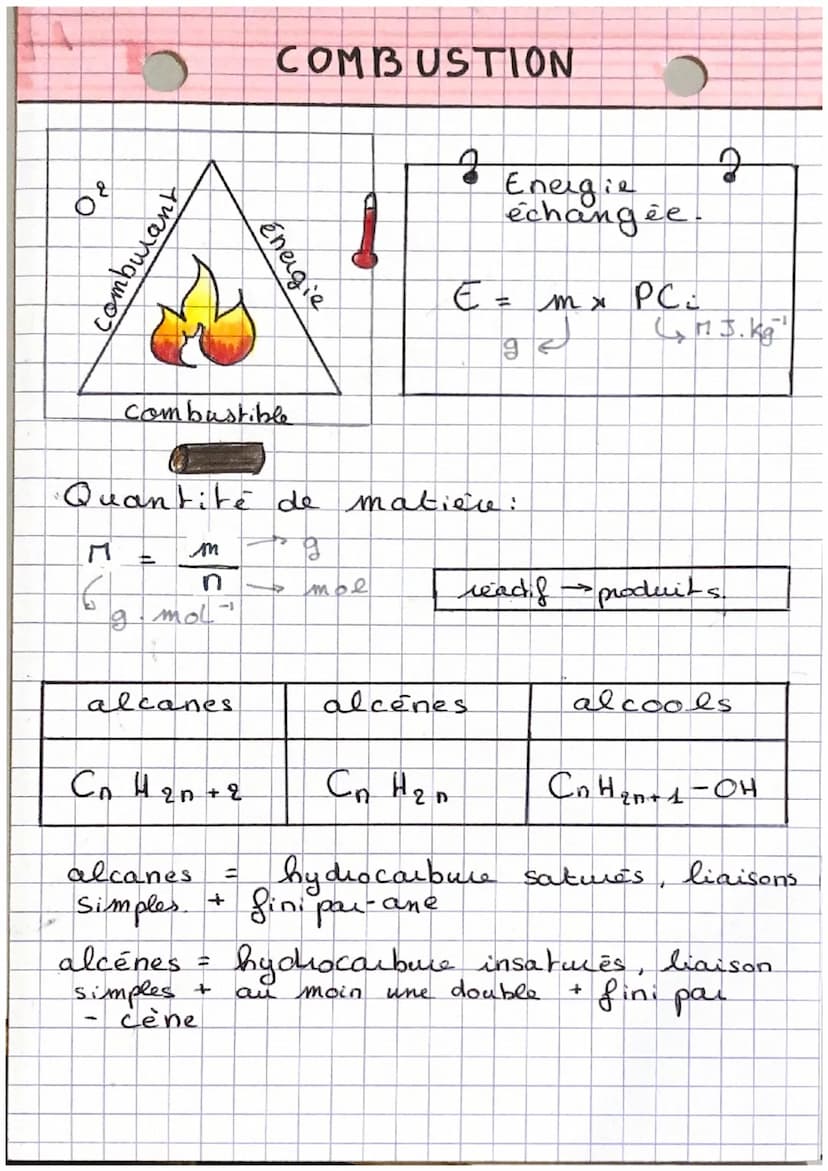 COMBUSTION
O²
comburant
énergie
combustible
Energie
échangée.
E = m x PCi
g
MJ.kg⁻¹
Quantité de matière :
M = m/n
g
mol
g.mol⁻¹
réactif → produits
alcanes alcénes alcools
CnH2n+2 CnH2n CnH2n+1-OH
alcanes = hydrocarbure saturés, liaisons
simples. + fini par -ane
alcénes = hydrocarbure insaturés, liaison
simples + au moin une double + fini par
- cène